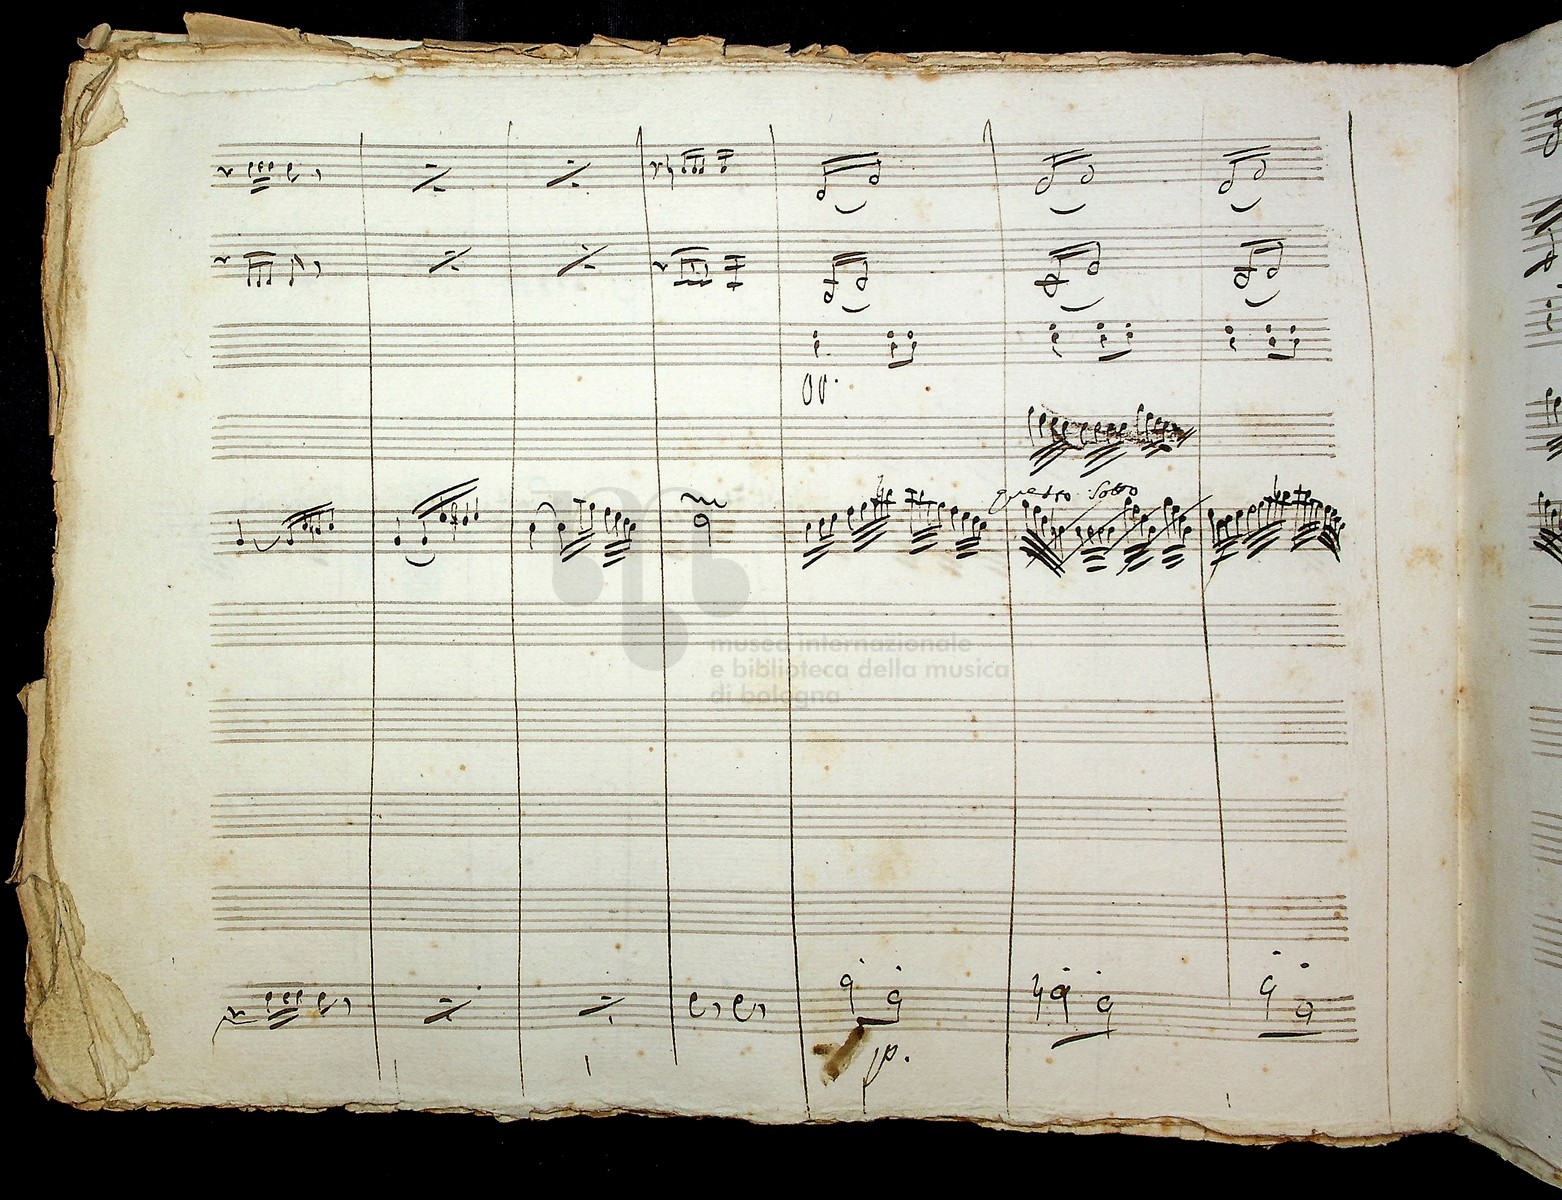 questo Sotto
museo internazionale
e biblioteca della musica
di bologna
p.